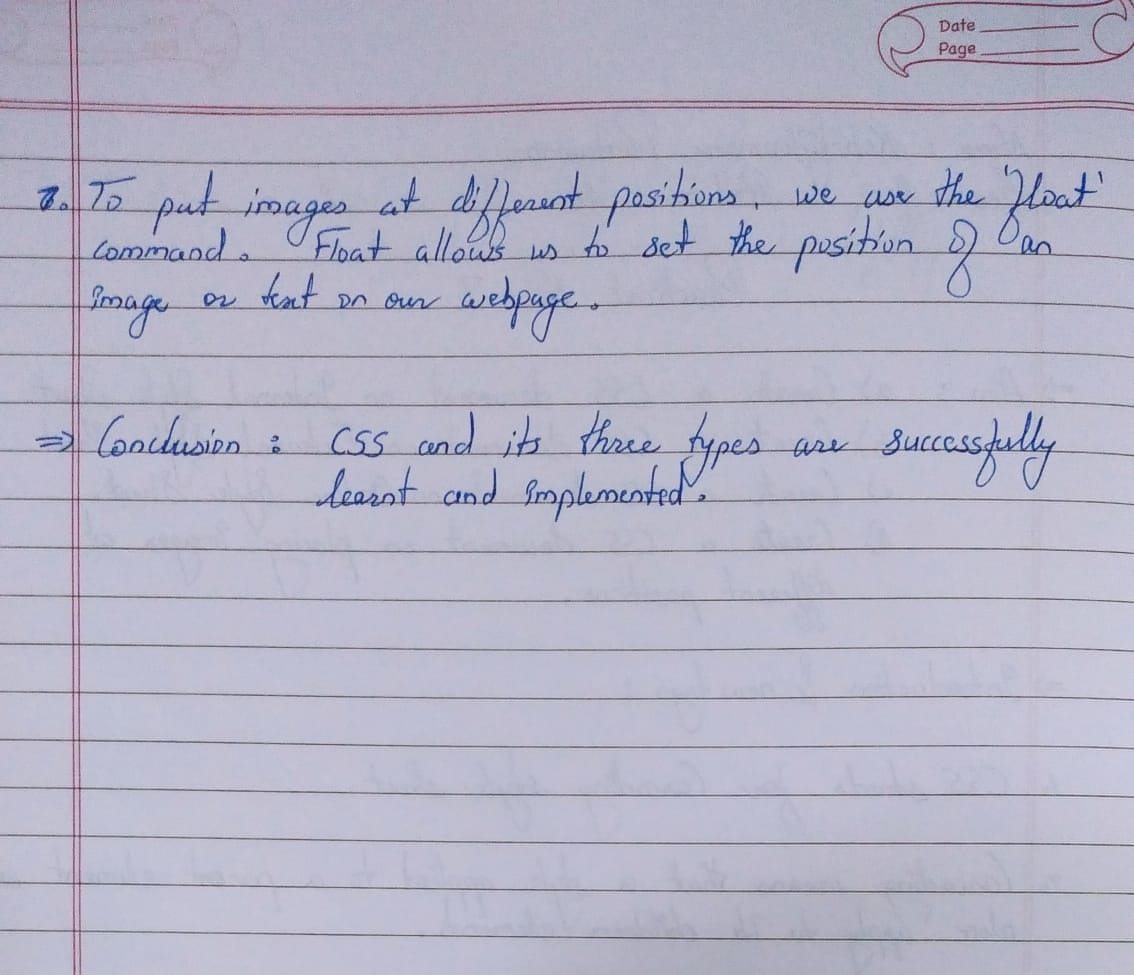 Date
Page
7. To put images at different positions, we use the 'float'
command. Float allows us to set the position of an
image or text on our webpage.
⇒ Conclusion : CSS and its three types are successfully
learnt and implemented.